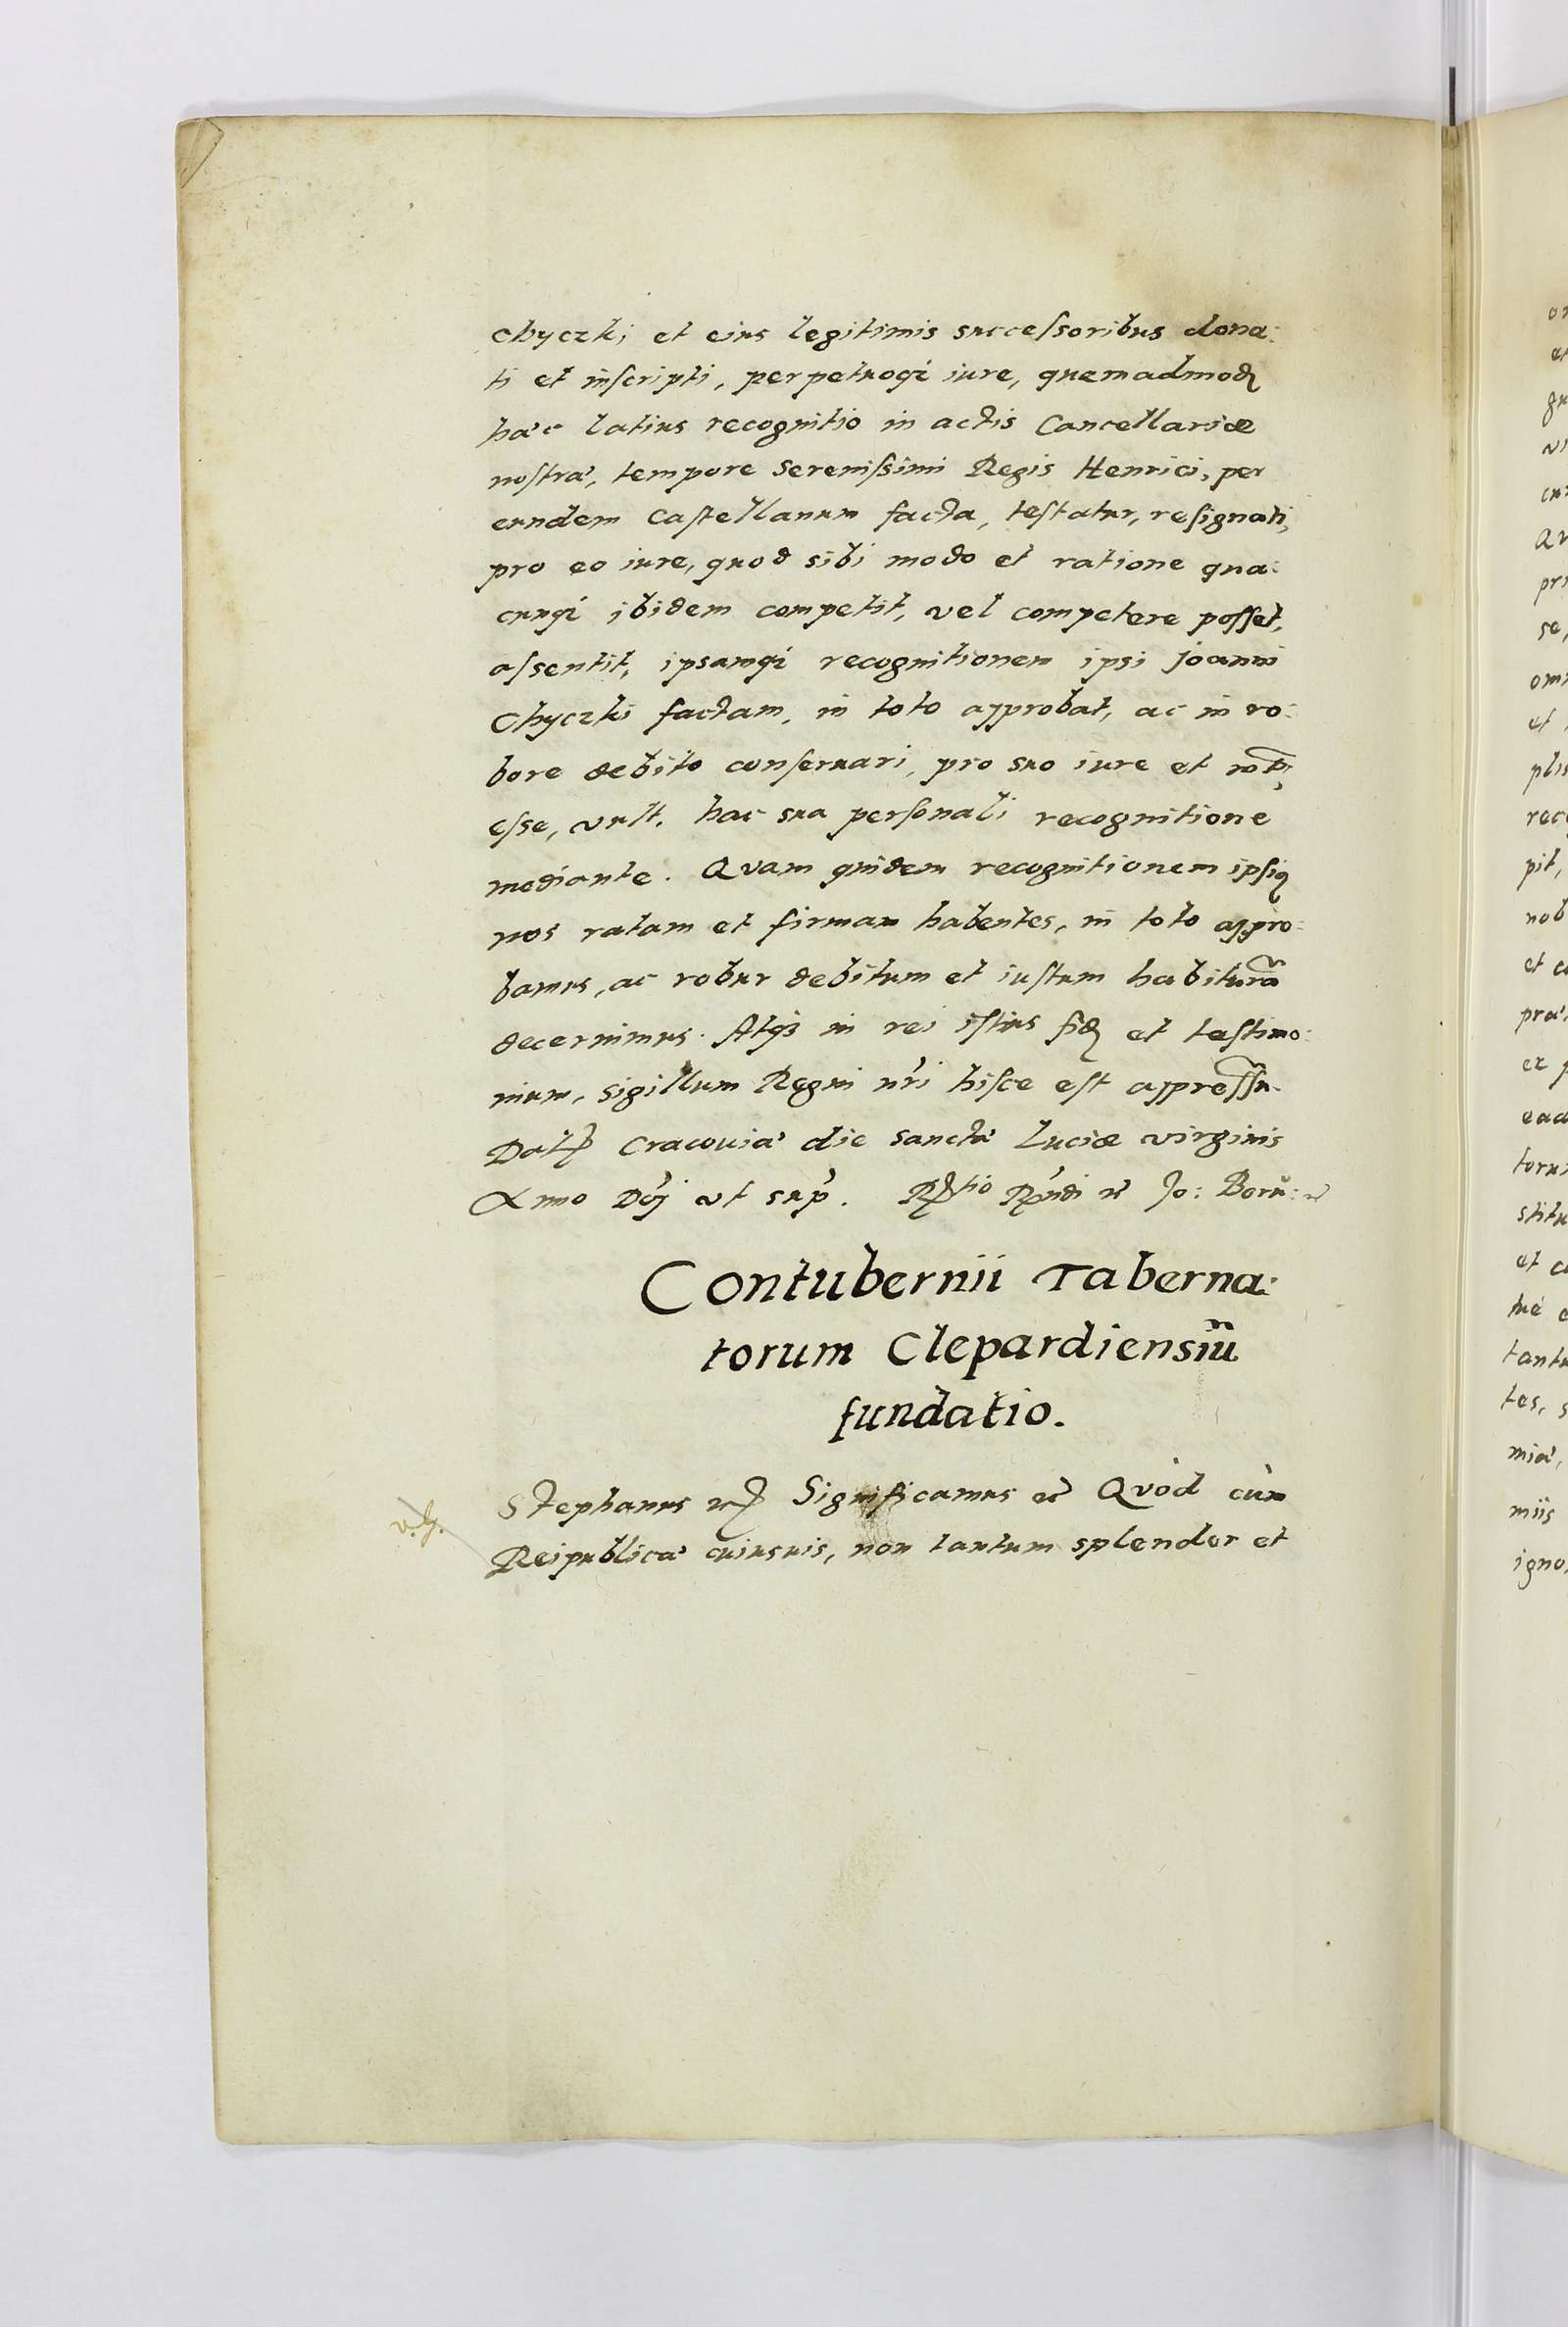 chyczki et eius legitimis successoribus dona:
ti et inscripti, perpetuoq; iure, quemadmodũ
hæc latius recognitio in actis Cancellariæ
nostræ, tempore Serenissimi Regis Henrici, per
eundem Castellanum facta, testatur, resignati,
pro eo iure, quod sibi modo et ratione qua:
cunq; ibidem competit, vel competere posset,
assentit, ipsamq; recognitionem ipsi Joanni
Chyczki factam, in toto approbat, ac in ro:
bore debito conseruari, pro suo iure et
esse, vult, hac sua personali recognitione
mediante. Quam quidem recognitionem ipsiq
nos ratam et firmam habentes, in toto appro:
bamus, ac robur debitum et iustum habiturã
decernimus. Atq; in rei istius fidẽ et testimo:
nium, sigillum Regni nr̃i hisce est appressũ.
Dat Cracouiæ die sanctæ Luciæ virginis
Anno Dñi vt sup̃. Jo: Boru:
Contubernii Taberna:
torum Clepardiensiũ
fundatio.
Stephanus etc Significamus etc Quòd cùm
Reipublicæ cuiusuis, non tantum splendor et